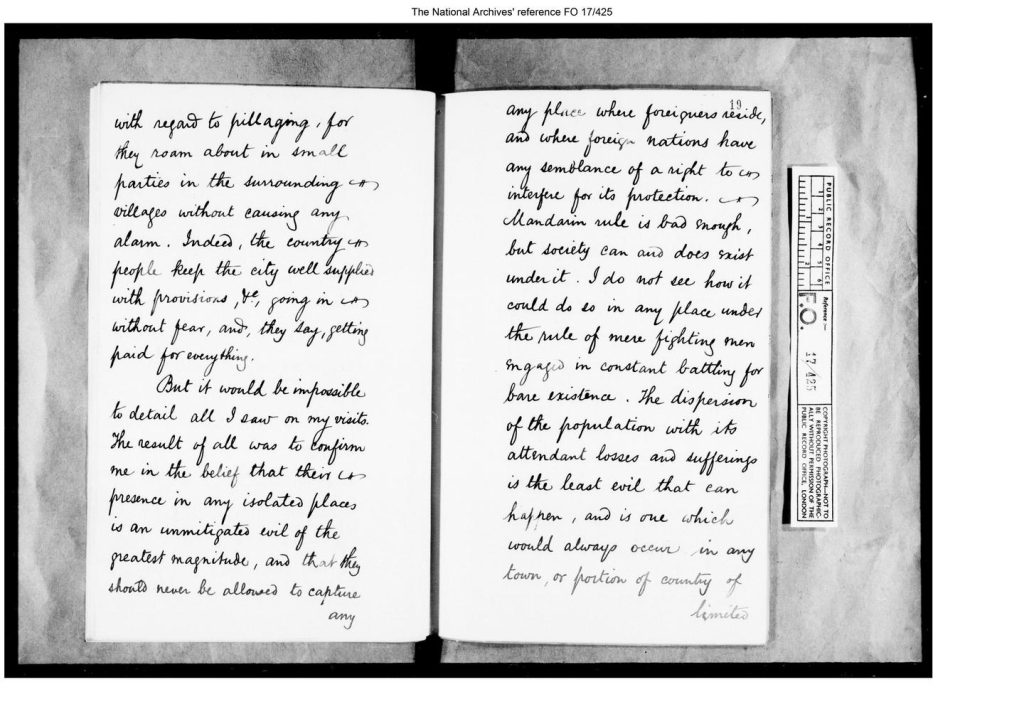 The National Archives' reference FO 17/425
with regard to pillaging, for
they roam about in small
parties in the surrounding
villages without causing any
alarm. Indeed, the country
people keep the city well supplied
with provisions, &c, going in
without fear, and, they say, getting
paid for everything.
But it would be impossible
to detail all I saw on my visits.
The result of all was to confirm
me in the belief that their
presence in any isolated places
is an unmitigated evil of the
greatest magnitude, and that they
should never be allowed to capture
any
19
any place where foreigners reside,
and where foreign nations have
any semblance of a right to
interfere for its protection.
Mandarin rule is bad enough,
but society can and does exist
under it. I do not see how it
could do so in any place under
the rule of mere fighting men
engaged in constant battling for
bare existence. The dispersion
of the population with its
attendant losses and sufferings
is the least evil that can
happen, and is one which
would always occur in any
town, or portion of country of
limited
PUBLIC RECORD OFFICE
1 2 3 4 5 6
1 2
Reference:-
F.O. 17/425
COPYRIGHT PHOTOGRAPH-NOT TO
BE REPRODUCED PHOTOGRAPHIC-
ALLY WITHOUT PERMISSION OF THE
PUBLIC RECORD OFFICE, LONDON